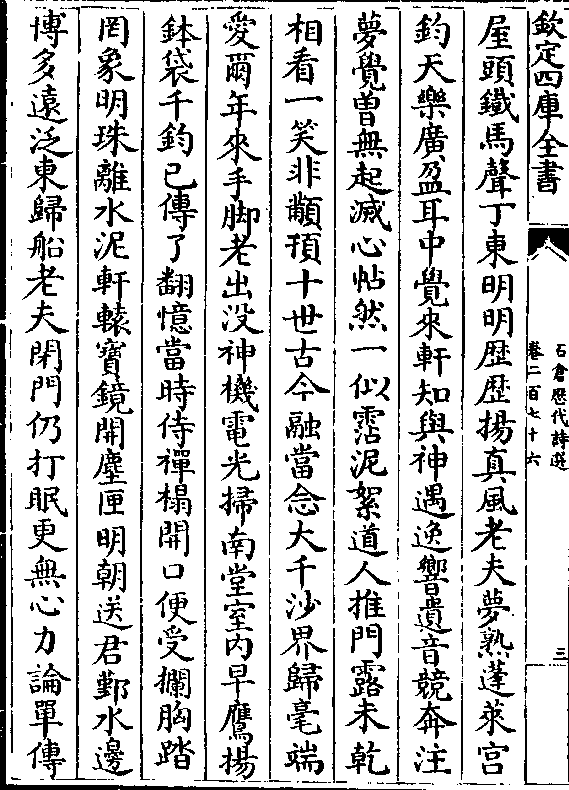 欽定四庫全書
石倉歷代詩選
卷二百七十六
三
屋頭鐵馬聲丁東明明歴歴揚真風老夫夢熟蓬萊宫
鈞天樂廣盈耳中覺來軒知與神遇逸響遺音競奔注
夢覺曽無起滅心帖然一似霑泥絮道人推門露未乾
相看一笑非顢頇十世古今融當念大千沙界歸毫端
愛爾年來手脚老出没神機電光掃南堂室内早鷹揚
鉢袋千鈞已傳了翻憶當時侍禪榻開口便受攔胸踏
罔象明珠離水泥軒轅寳鏡開塵匣明朝送君鄞水邊
博多遠泛東歸船老夫閉門仍打眠更無心力論單傳